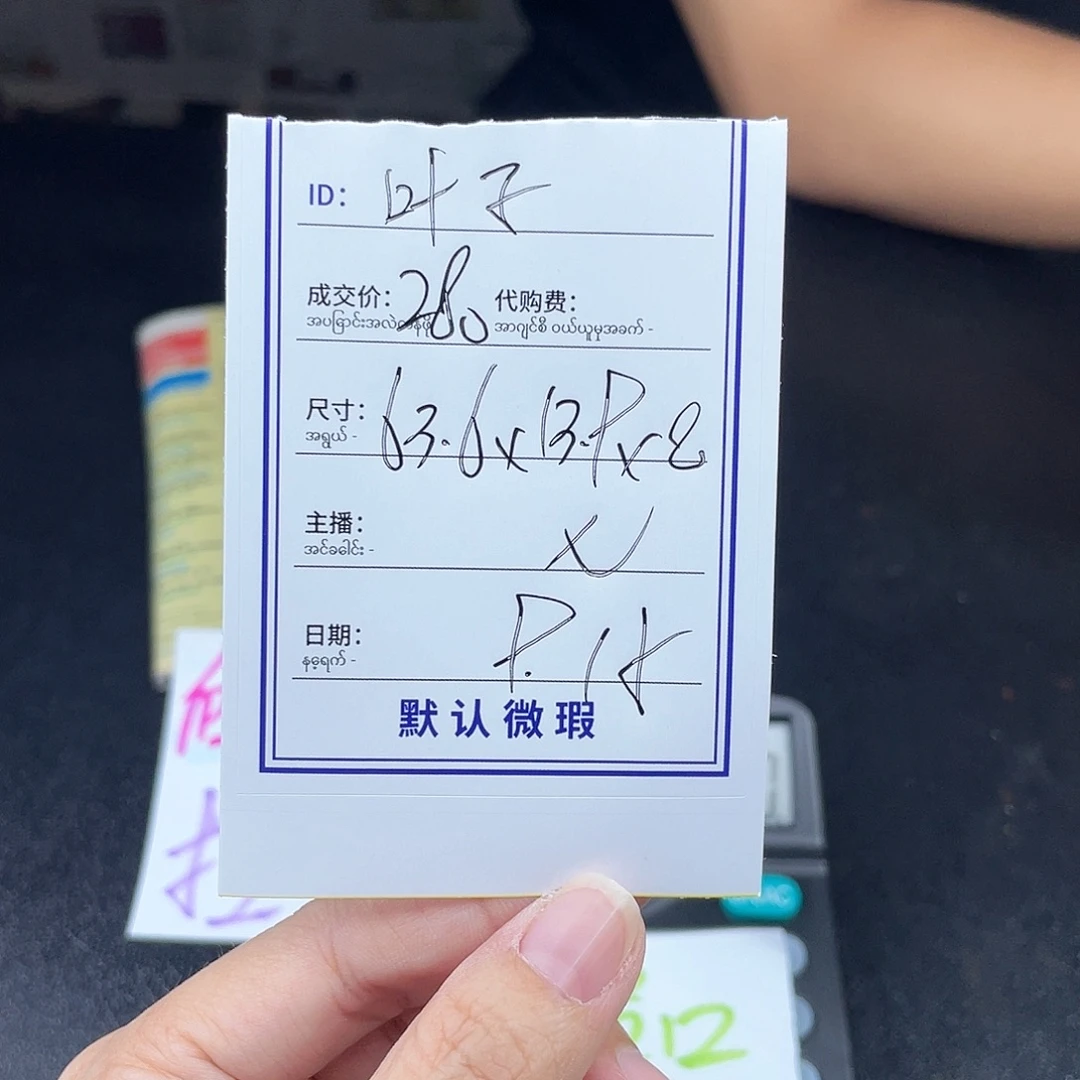 ID: 叶子
成交价: 280 代购费:
အပြောင်းအလဲ အာဂျင်စီ ဝယ်ယူမှုအခက် -
尺寸: 63.6x13.9x8
အရွယ် -
主播:
အင်ခေါင်း -
日期: 9.15
နေ့ရက် -
默认微瑕
口